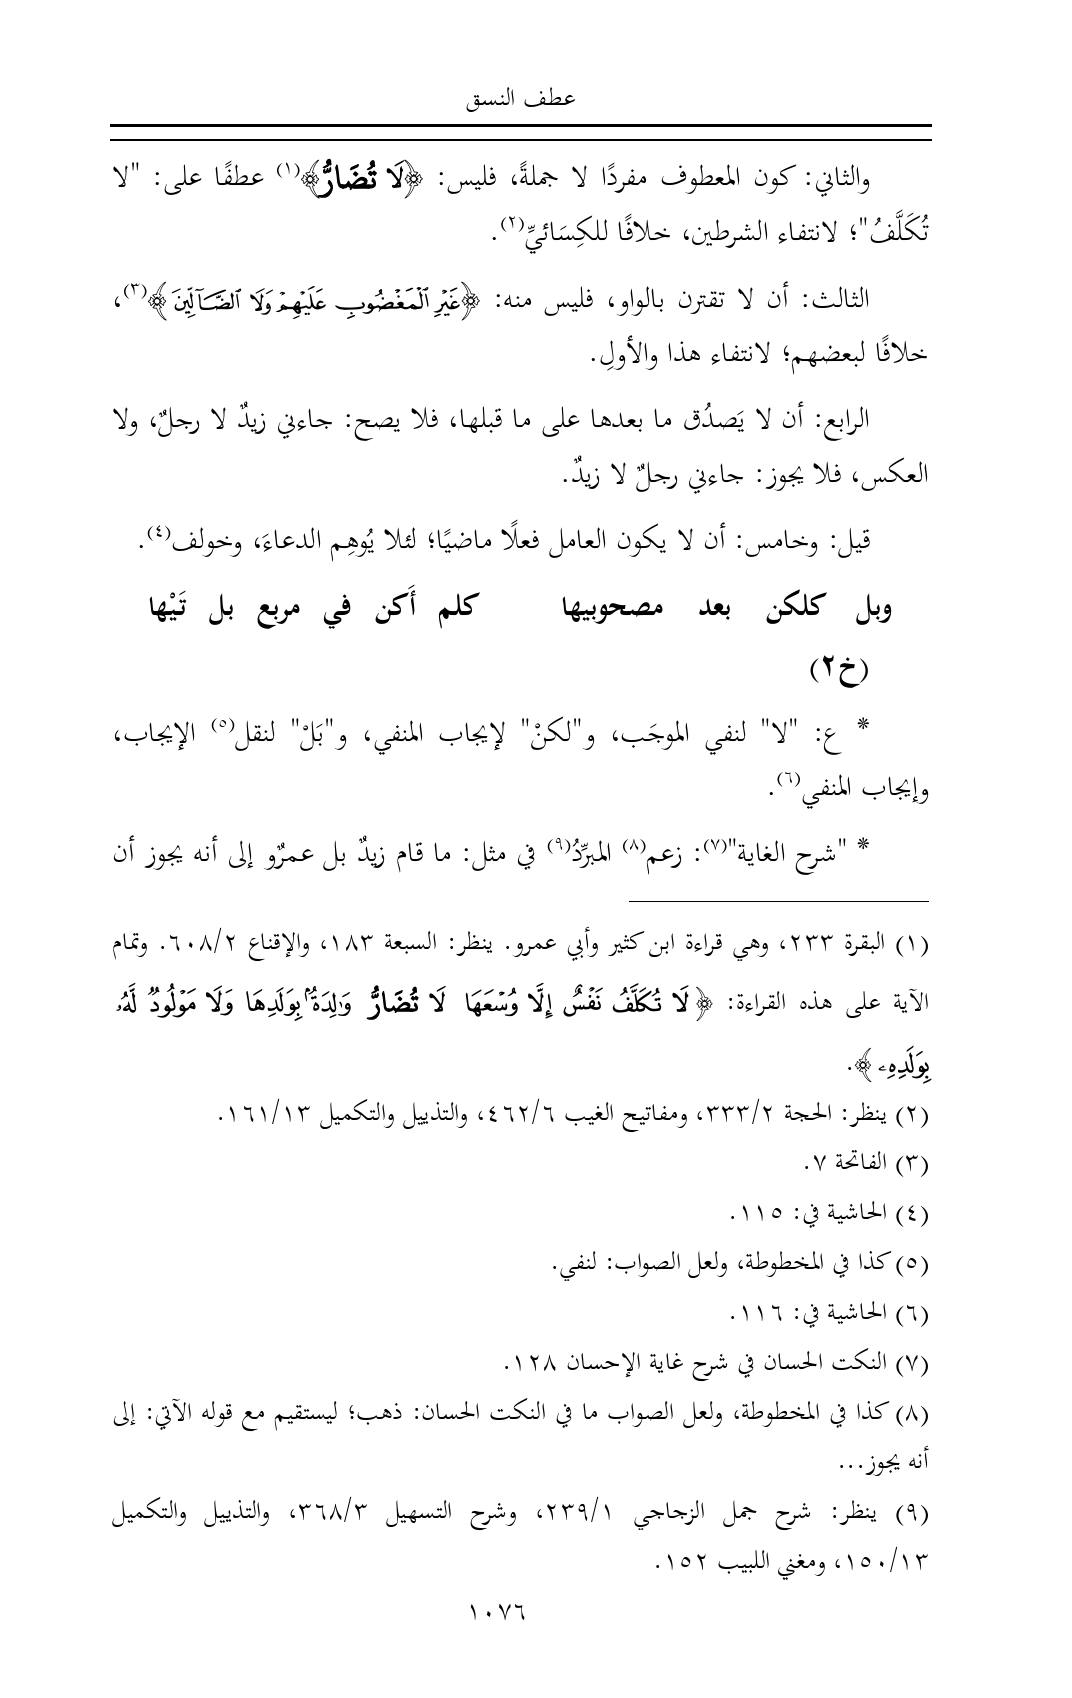 عطف النسق
والثاني: كون المعطوف مفردًا لا جملةً، فليس: ﴿لَا تُضَارُّ﴾(١) عطفًا على: "لا
تُكَلَّفُ"؛ لانتفاء الشرطين، خلافًا للكِسَائيِّ(٢).
الثالث: أن لا تقترن بالواو، فليس منه: ﴿غَيْرِ ٱلْمَغْضُوبِ عَلَيْهِمْ وَلَا ٱلضَّآلِّينَ﴾(٣)،
خلافًا لبعضهم؛ لانتفاء هذا والأولِ.
الرابع: أن لا يَصدُق ما بعدها على ما قبلها، فلا يصح: جاءني زيدٌ لا رجلٌ، ولا
العكس، فلا يجوز: جاءني رجلٌ لا زيدٌ.
قيل: وخامس: أن لا يكون العامل فعلًا ماضيًا؛ لئلا يُوهِم الدعاءَ، وخولف(٤).
وبل كلكن بعد مصحوبيها كلم أَكن في مربع بل تَيْها
(خ٢)
* ع: "لا" لنفي الموجَب، و"لكنْ" لإيجاب المنفي، و"بَلْ" لنقل(٥) الإيجاب،
وإيجاب المنفي(٦).
* "شرح الغاية"(٧): زعم(٨) المبرِّدُ(٩) في مثل: ما قام زيدٌ بل عمرٌو إلى أنه يجوز أن
(١) البقرة ٢٣٣، وهي قراءة ابن كثير وأبي عمرو. ينظر: السبعة ١٨٣، والإقناع ٦٠٨/٢. وتمام
الآية على هذه القراءة: ﴿لَا تُكَلَّفُ نَفْسٌ إِلَّا وُسْعَهَا لَا تُضَارُّ وَٰلِدَةٌۢ بِوَلَدِهَا وَلَا مَوْلُودٌ لَّهُۥ
بِوَلَدِهِۦ﴾.
(٢) ينظر: الحجة ٣٣٣/٢، ومفاتيح الغيب ٤٦٢/٦، والتذييل والتكميل ١٦١/١٣.
(٣) الفاتحة ٧.
(٤) الحاشية في: ١١٥.
(٥) كذا في المخطوطة، ولعل الصواب: لنفي.
(٦) الحاشية في: ١١٦.
(٧) النكت الحسان في شرح غاية الإحسان ١٢٨.
(٨) كذا في المخطوطة، ولعل الصواب ما في النكت الحسان: ذهب؛ ليستقيم مع قوله الآتي: إلى
أنه يجوز...
(٩) ينظر: شرح جمل الزجاجي ٢٣٩/١، وشرح التسهيل ٣٦٨/٣، والتذييل والتكميل
١٥٠/١٣، ومغني اللبيب ١٥٢.
١٠٧٦